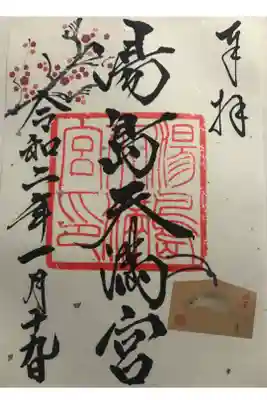 奉拝
湯島天満宮
令和二年一月十九日
湯島
宮印